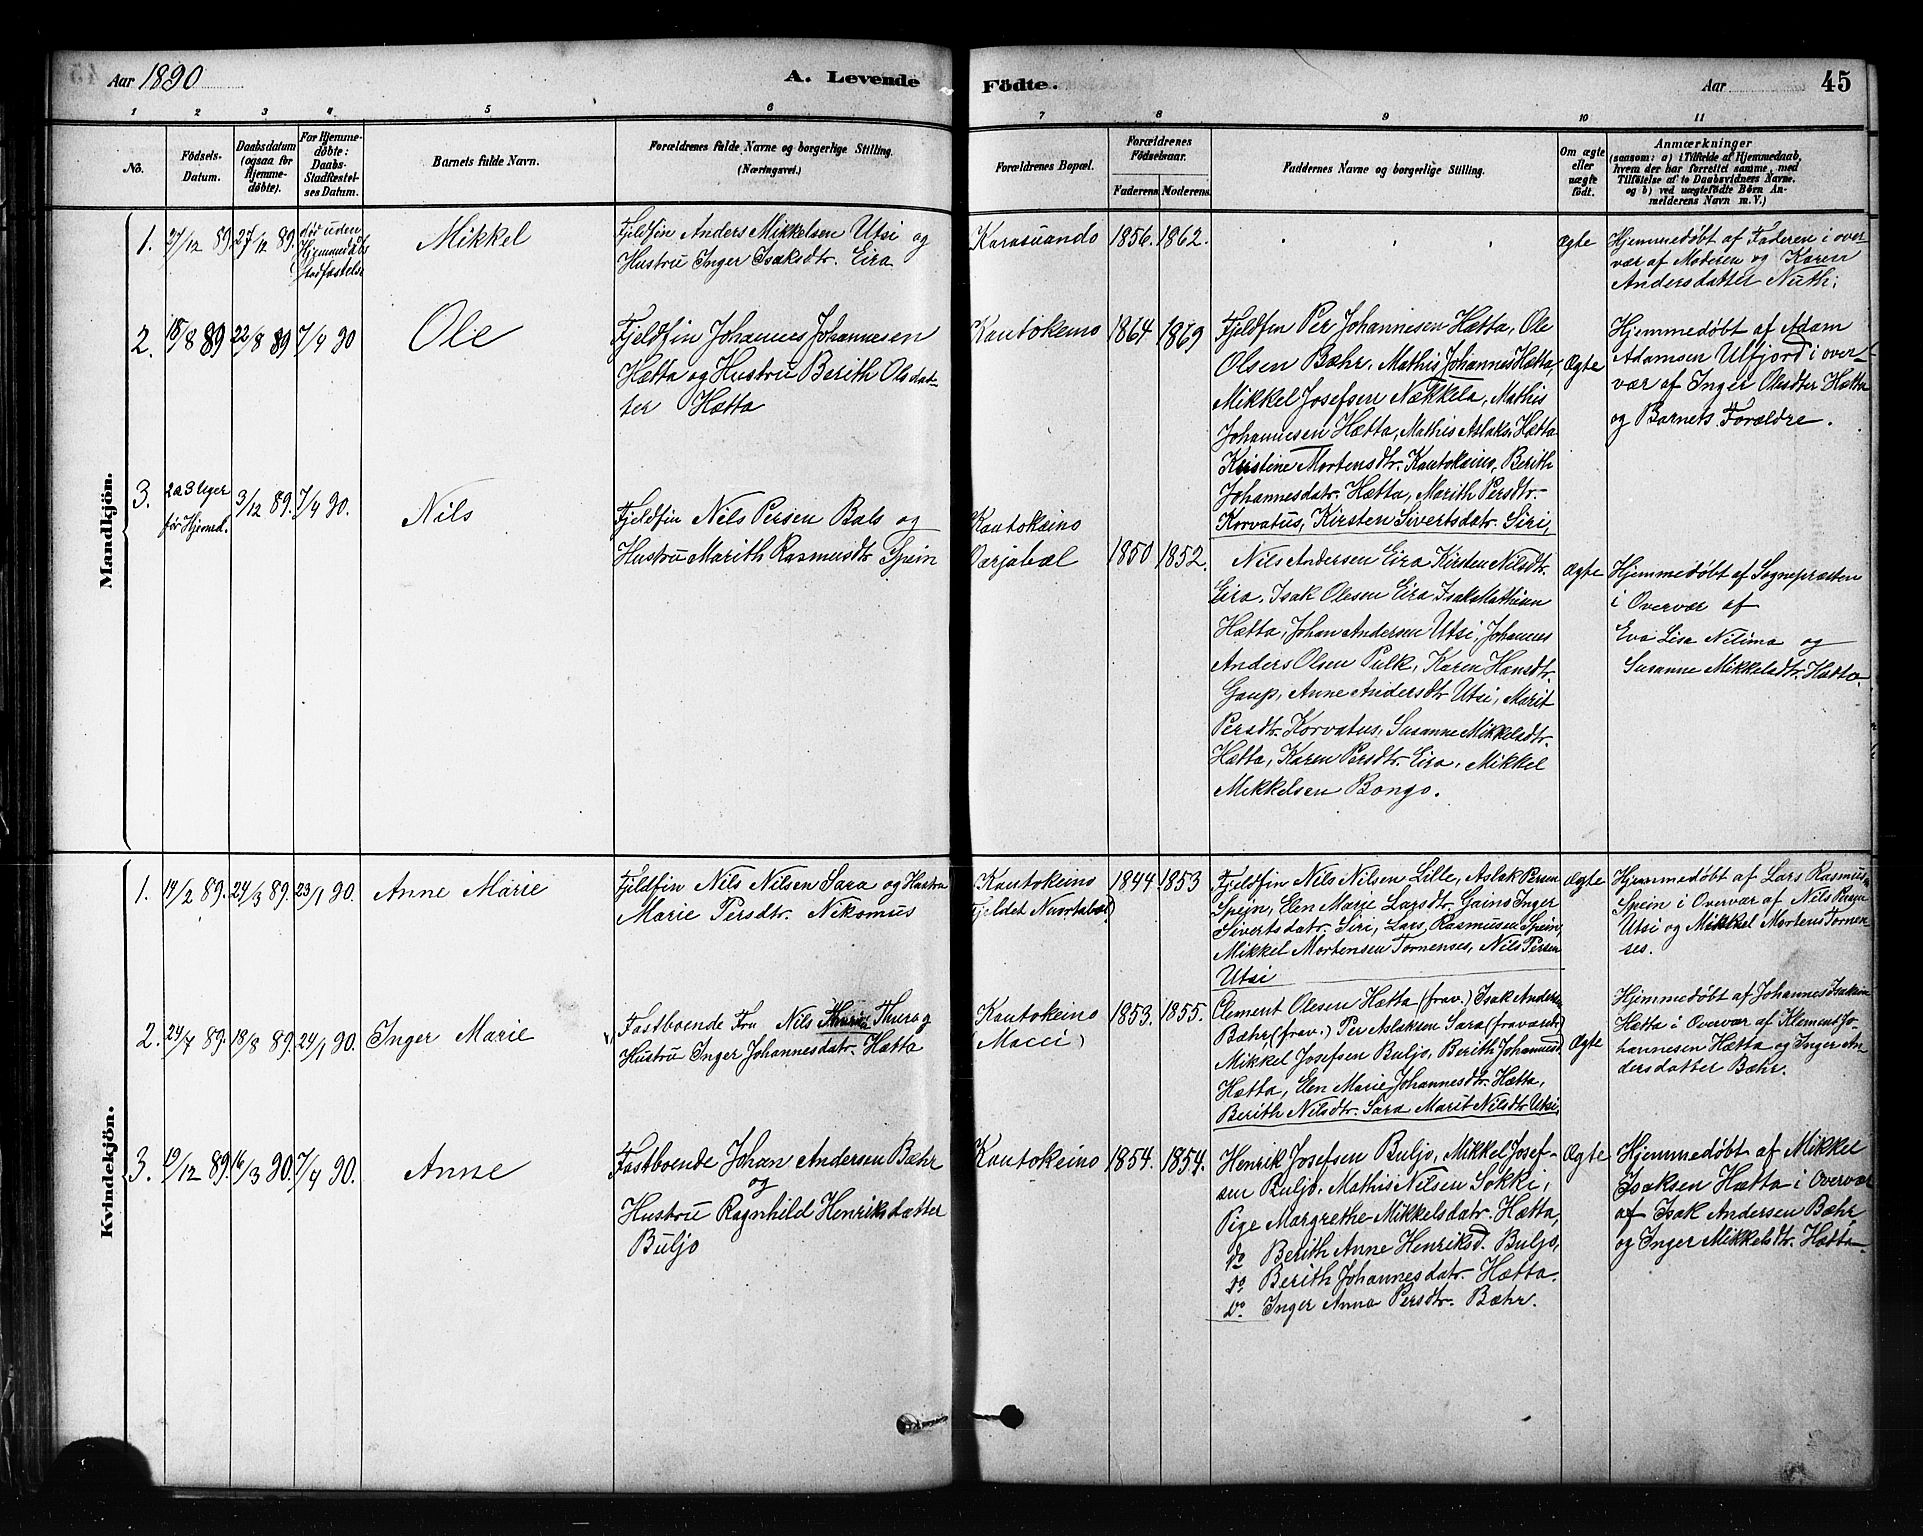 Aar 1890
A. Levende
Födte.
Aar
45
1 2 3 4 5 6 7 8 9 10 11
No.
Födsels-
Datum.
Daabsdatum
(ogsaa for
Hjemme-
døbte).
For Hjemme-
døbte:
Daabs-
Stadfæstel-
ses Datum.
Barnets fulde Navn.
Forældrenes fulde Navne og borgerlige Stilling.
(Næringsvei.)
Forældrenes Bopæl.
Forældrenes
Fødselsaar.
Faderens. Moderens.
Faddernes Navne og borgerlige Stilling.
Om ægte
eller
uægte
født.
Anmærkninger
(saasom: a) i Tilfælde af Hjemmedaab,
hvem der har forrettet samme, med
Tilføielse af to Daabsvidners Navne,
og b) ved uægtefødte Børn An-
melderens Navn m. V.)
Mandkjön.
1. 27/12 89 27/12 89. død uden
Hjemmedåbs
Stadfæstelse
Mikkel
Fjeldfin Anders Mikkelsen Utsi og
Hustru Inger Isaksdtr. Eira
Karasuando 1856. 1862.
Ægte
Hjemmedøbt af Faderen i over-
vær af Moderen og Karen
Andersdatter Nuth.
2. 18/8 89 22/8 89 7/4 90
Ole
Fjeldfin Johannes Johannesen
Hætta og Hustru Berith Olsdat-
ter Hætta
Kautokeino 1864 1869
Fjeldfin Per Johannesen Hætta, Ole
Olsen Bæhr, Mathis Johannes Hætta,
Mikkel Josefsen Nækkela, Mathis
Johannesen Hætta, Mathis Aslaks. Hætta
Kirstine Mortensdtr. Kautokeino, Berith
Johannesdatr. Hætta, Marith Persdtr.
Korvatus, Kirsten Sivertsdatr. Siri,
Ægte
Hjemmedøbt af Adam
Adamsen Ulfjord i over-
vær af Inger Olesdter Hætta
og Barnets Forældre.
3. 2 a 3 uger
før Hjemd. 3/12 89. 7/4 90.
Nils
Fjeldfin Nils Persen Bals og
Hustru Marith Rasmusdtr Spein
Kautokeino
1850 1852.
Nils Andersen Eira Kirsten Nilsdtr.
Eira, Isak Olesen Eira Isak Mathisen
Hætta, Johan Andersen Utsi, Johannes
Anders Olsen Pulk, Karen Hansdtr.
Gaup, Anne Andersdtr Utsi, Marit
Persdtr. Korvatus, Susanne Mikkelsdtr.
Hætta, Karen Persdtr. Eira, Mikkel
Mikkelsen Bongo.
Ægte
Hjemmedøbt af Sognepræsten
i Overvær af
Eva Lisa Nilima og
Susanne Mikkelsdtr. Hætta.
Kvindekjön.
1. 14/2 89. 24/3 89. 23/1 90.
Anne Marie
Fjeldfin Nils Nilsen Sara og Hustru
Marie Persdtr. Nikomus
Kautokeino
Fjeldet Nuortabæl)
1844 1853
Fjeldfin Nils Nilsen Lille, Aslak Persen
Spein, Elen Marie Larsdtr. Gaino Inger
Sivertsdatr. Siri, Lars Rasmusen Spein,
Mikkel Mortensen Tornenses, Nils Persen
Utsi
Ægte
Hjemmedøbt af Lars Rasmus
Spein i Overvær af Nils Persen
Utsi og Mikkel Mortens Tornen-
ses.
2. 24/7 89. 18/8 89. 24/1 90.
Inger Marie
Fastboende Fra Nils Thuri og
Hustru Inger Johannesdatr. Hætta
Kautokeino
Macci)
1853. 1855.
Clement Olesen Hætta (frav.) Isak Andersen
Bæhr, (frav.) Per Aslaksen Sara (fraværd.)
Mikkel Josefsen Buljo, Berith Johannesd.
Hætta, Elen Marie Johannesdtr. Hætta,
Berith Nilsdtr. Sara Marit Nilsdtr Utsi,
Ægte
Hjemmedøbt af Johannes Isaksen
Hætta i Overvær af Klemens Jo-
hannesen Hætta og Inger An-
dersdatter Bæhr.
3. 19/12 89. 16/3 90. 7/4 90.
Anne
Fastboende Johan Andersen Bæhr
og
Hustru Ragnhild Henriksdatter
Buljo
Kautokeino 1854. 1854.
Henrik Josefsen Buljo, Mikkel Josef-
sen Buljo, Mathis Nilsen Sokki,
Pige Margrethe Mikkelsdatr. Hætta,
do Berith Anne Henriksd. Buljo,
do Berith Johannesdatr. Hætta.
Do Inger Anna Persdtr. Bæhr.
Ægte
Hjemmedøbt af Mikkel
Isaksen Hætta i Overvær
af Isak Andersen Bæhr
og Inger Mikkelsdtr. Hætta